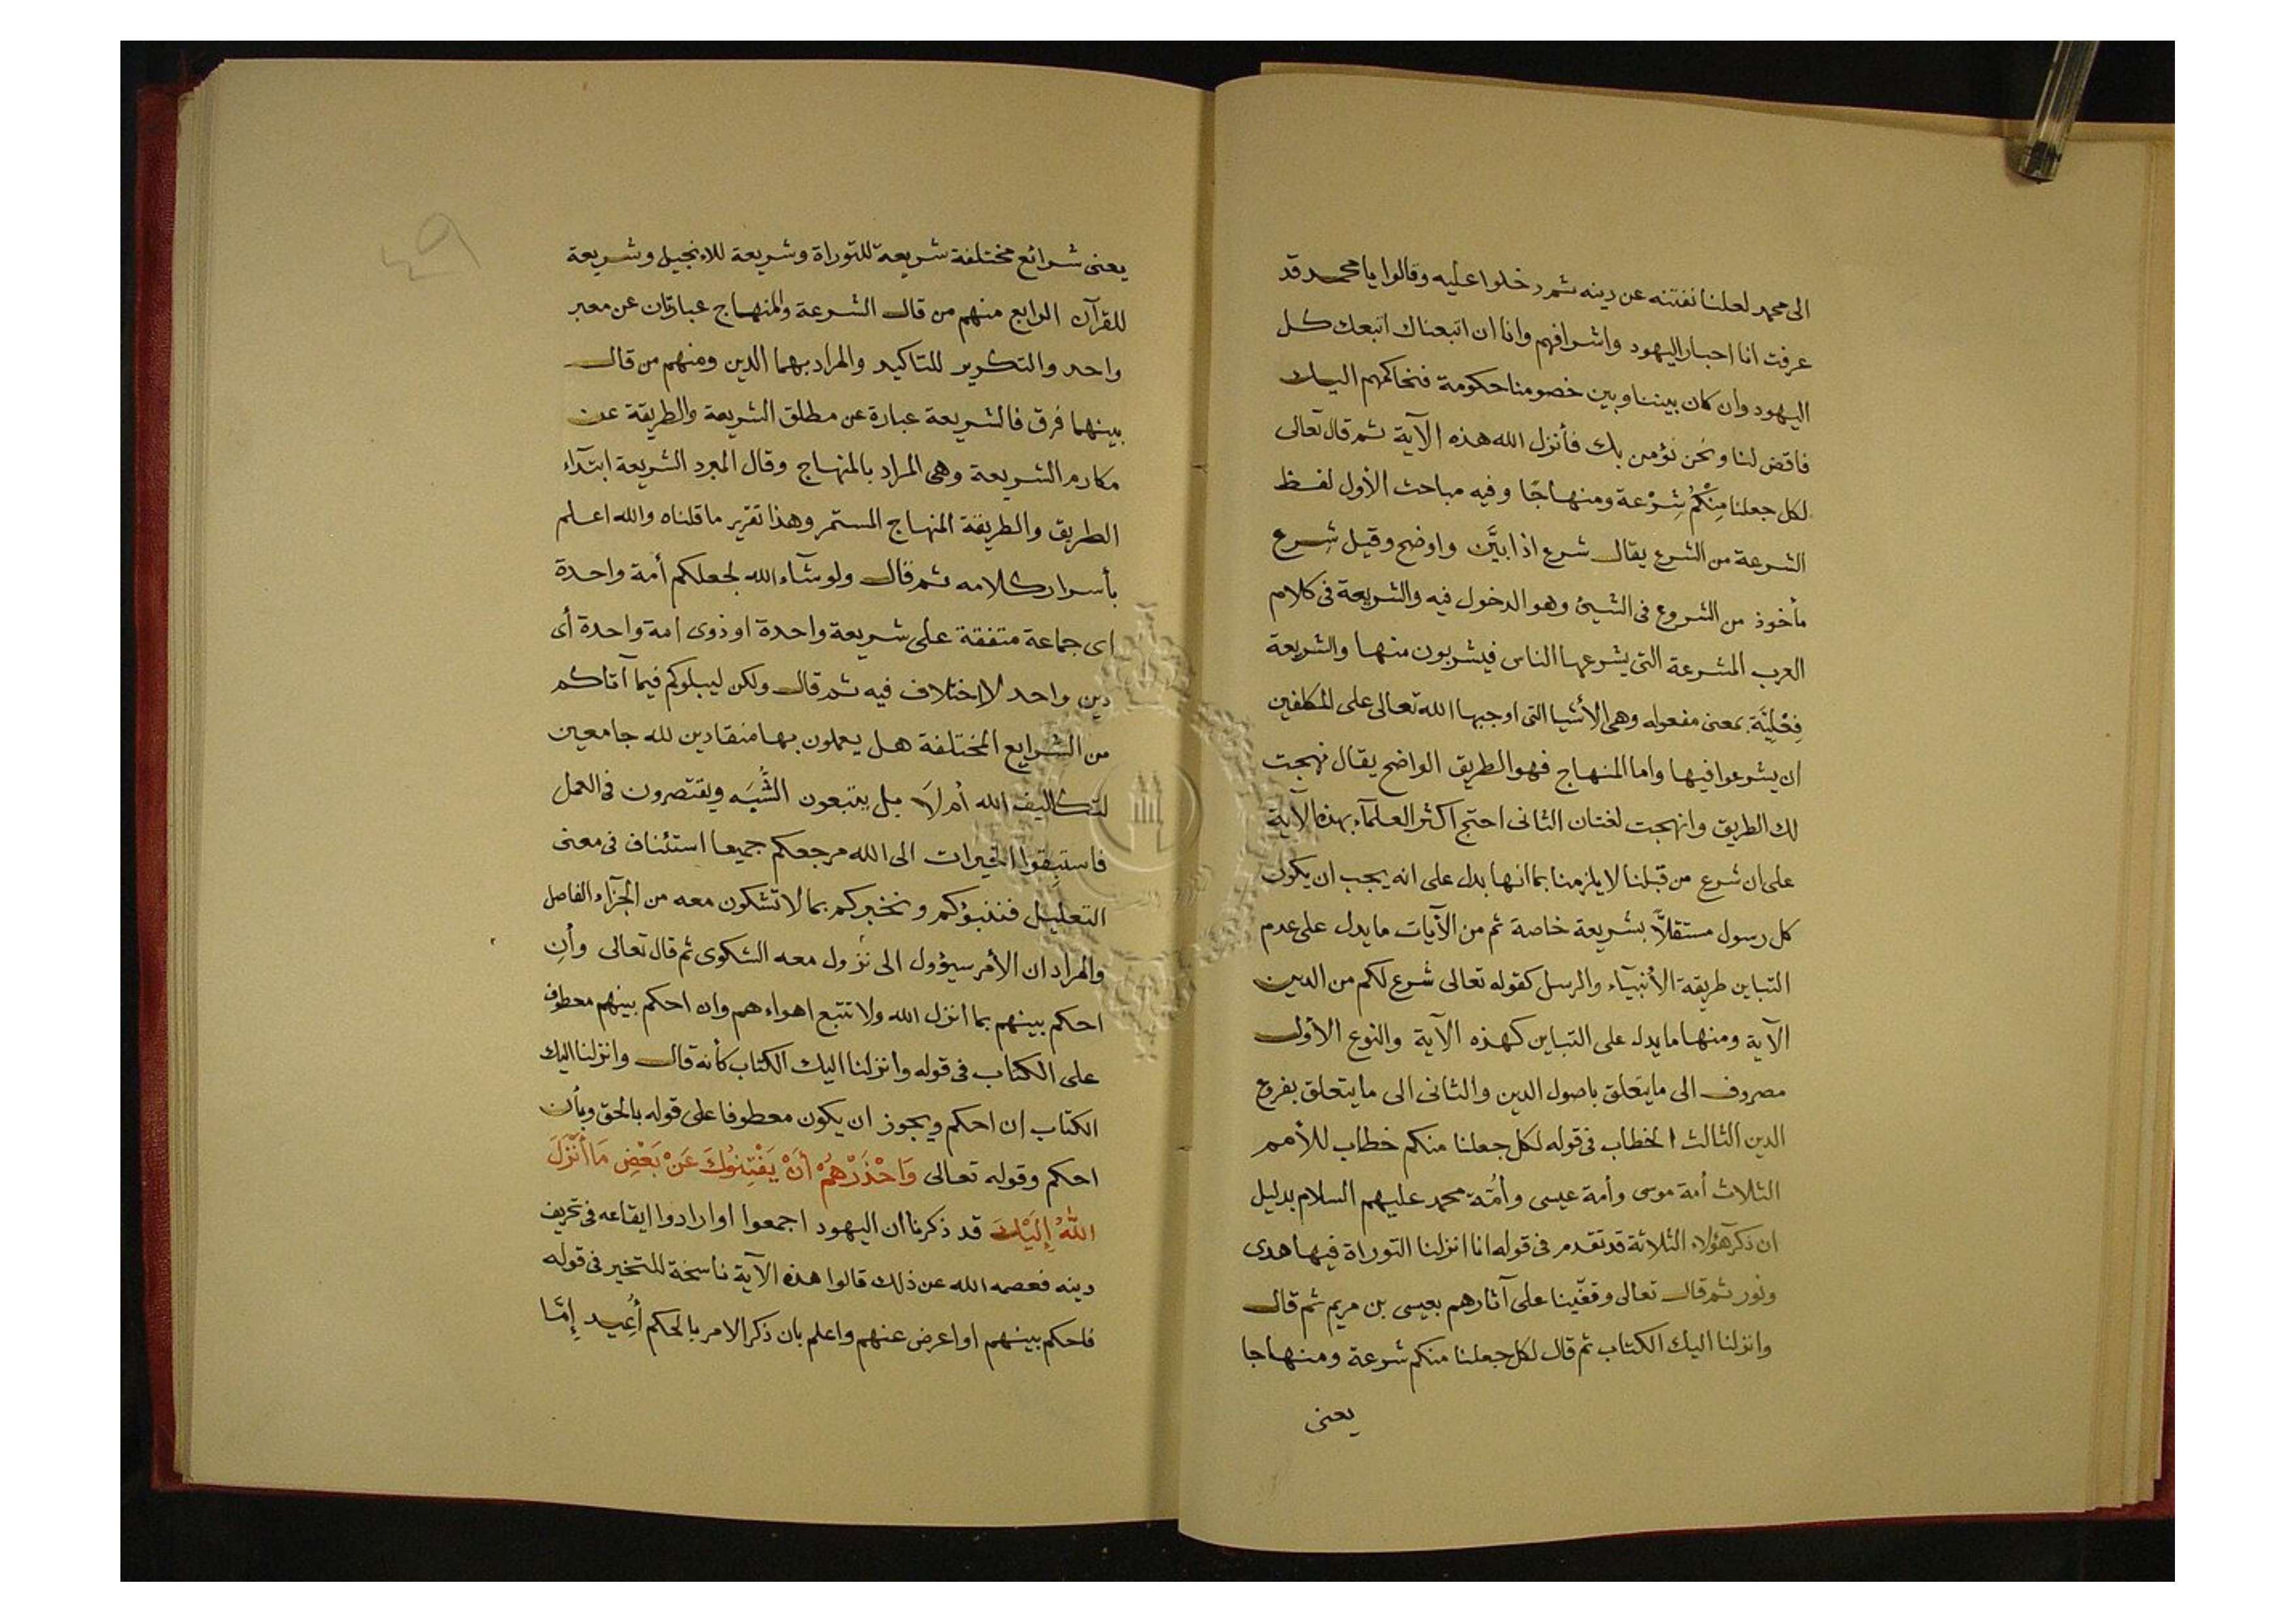 الى محمد لعلنا نفتنه عن دينه ثم دخلوا عليه وقالوا يا محمد قد
عرفت انا احبار اليهود واشرافهم وانا ان اتبعناك اتبعك كل
اليهود وان كان بيننا وبين خصومنا حكومة فنحاكمهم اليك
فاقض لنا ونحن نؤمن بك فأنزل الله هذه الآية ثم قال تعالى
لكل جعلنا مِنْكُمُ شِرْعة ومنهاجًا وفيه مباحث الأول لفظ
الشرعة من الشرع يقال شرع اذا بيَّن واوضح وقيل شرع
مأخوذ من الشروع فى الشيئ وهو الدخول فيه والشريعة فى كلام
العرب المشرعة التى يشرعها الناس فيشربون منها والشريعة
فِعْلِيَّة بمعنى مفعوله وهى الأشيا التى اوجبها الله تعالى على المكلفين
ان يشرعوا فيها واما المنهاج فهو الطريق الواضح يقال نهجت
لك الطريق وانهجت لغتان الثانى احتج اكثر العلمآء بهذه الآية
على ان شرع من قبلنا لا يلزمنا بما انها بدل على انه يجب ان يكون
كل رسول مستقلاً بشريعة خاصة ثم من الآيات ما يدل على عدم
التباين طريقة الأنبيآء والرسل كقوله تعالى شرع لكم من الدين
الآية ومنها ما يدل على التباين كهذه الآية والنوع الأول
مصروف الى ما يتعلق باصول الدين والثانى الى ما يتعلق بفروع
الدين الثالث الخطاب فى قوله لكل جعلنا منكم خطاب للأمم
الثلاث أمة موسى وأمة عيسى وأمّة محمد عليهم السلام بدليل
ان ذكر هؤلاء الثلاثة قد تقدم فى قوله انا انزلنا التوراة فيها هدى
ونور ثم قال تعالى وقفّينا على آثارهم بعيسى بن مريم ثم قال
وانزلنا اليك الكتاب ثم قال لكل جعلنا منكم شرعة ومنهاجا
يعنى
يعنى شرائع مختلفة شريعة للتوراة وشريعة للانجيل وشريعة
للقرآن الرابع منهم من قال الشرعة والمنهاج عبارتان عن معبر
واحد والتكرير للتاكيد والمراد بهما الدين ومنهم من قال
بينهما فرق فالشريعة عبارة عن مطلق الشريعة والطريقة عن
مكارم الشريعة وهى المراد بالمنهاج وقال المبرد الشريعة ابتدآء
الطريق والطريقة المنهاج المستمر وهذا تقرير ما قلناه والله اعلم
بأسرار كلامه ثم قال ولو شآء الله لجعلكم أمة واحدة
اى جماعة متفقة على شريعة واحدة او ذوى امة واحدة أى
دين واحد لا اختلاف فيه ثم قال ولكن ليبلوكم فيما آتاكم
من الشرايع المختلفة هل يعملون بها منقادين لله جامعين
لتكاليف الله أم لَا بل يتبعون الشُّبَه ويقتصرون فى العمل
فاستبِقوا الخيرات الى الله مرجعكم جميعا استئناف فى معنى
التعليل فننبؤكم ونخبركم بما لا تشكون معه من الجزآء الفاصل
والمراد ان الأمر سيؤول الى نزول معه الشكوى ثم قال تعالى وأنِ
احكم بينهم بما انزل الله ولا تتبع اهواءهم وان احكم بينهم معطوف
على الكتاب فى قوله وأنزلنا اليك الكتاب كأنه قال وانزلنا اليك
الكتاب ان احكم ويجوز ان يكون معطوفا على قوله بالحق وبأن
احكم وقوله تعالى وَاحْذَرْهُمْ أَنْ يَفْتِنُوكَ عَنْ بَعْضِ مَا أَنْزَلَ
اللهُ إِلَيْكَ قد ذكرنا ان اليهود اجمعوا او ارادوا ايقاعه فى تحريف
دينه فعصمه الله عن ذلك قالوا هذه الآية ناسخة للتخير فى قوله
فاحكم بينهم او اعرض عنهم واعلم بان ذكر الامر بالحكم أُعِيد إِمّا